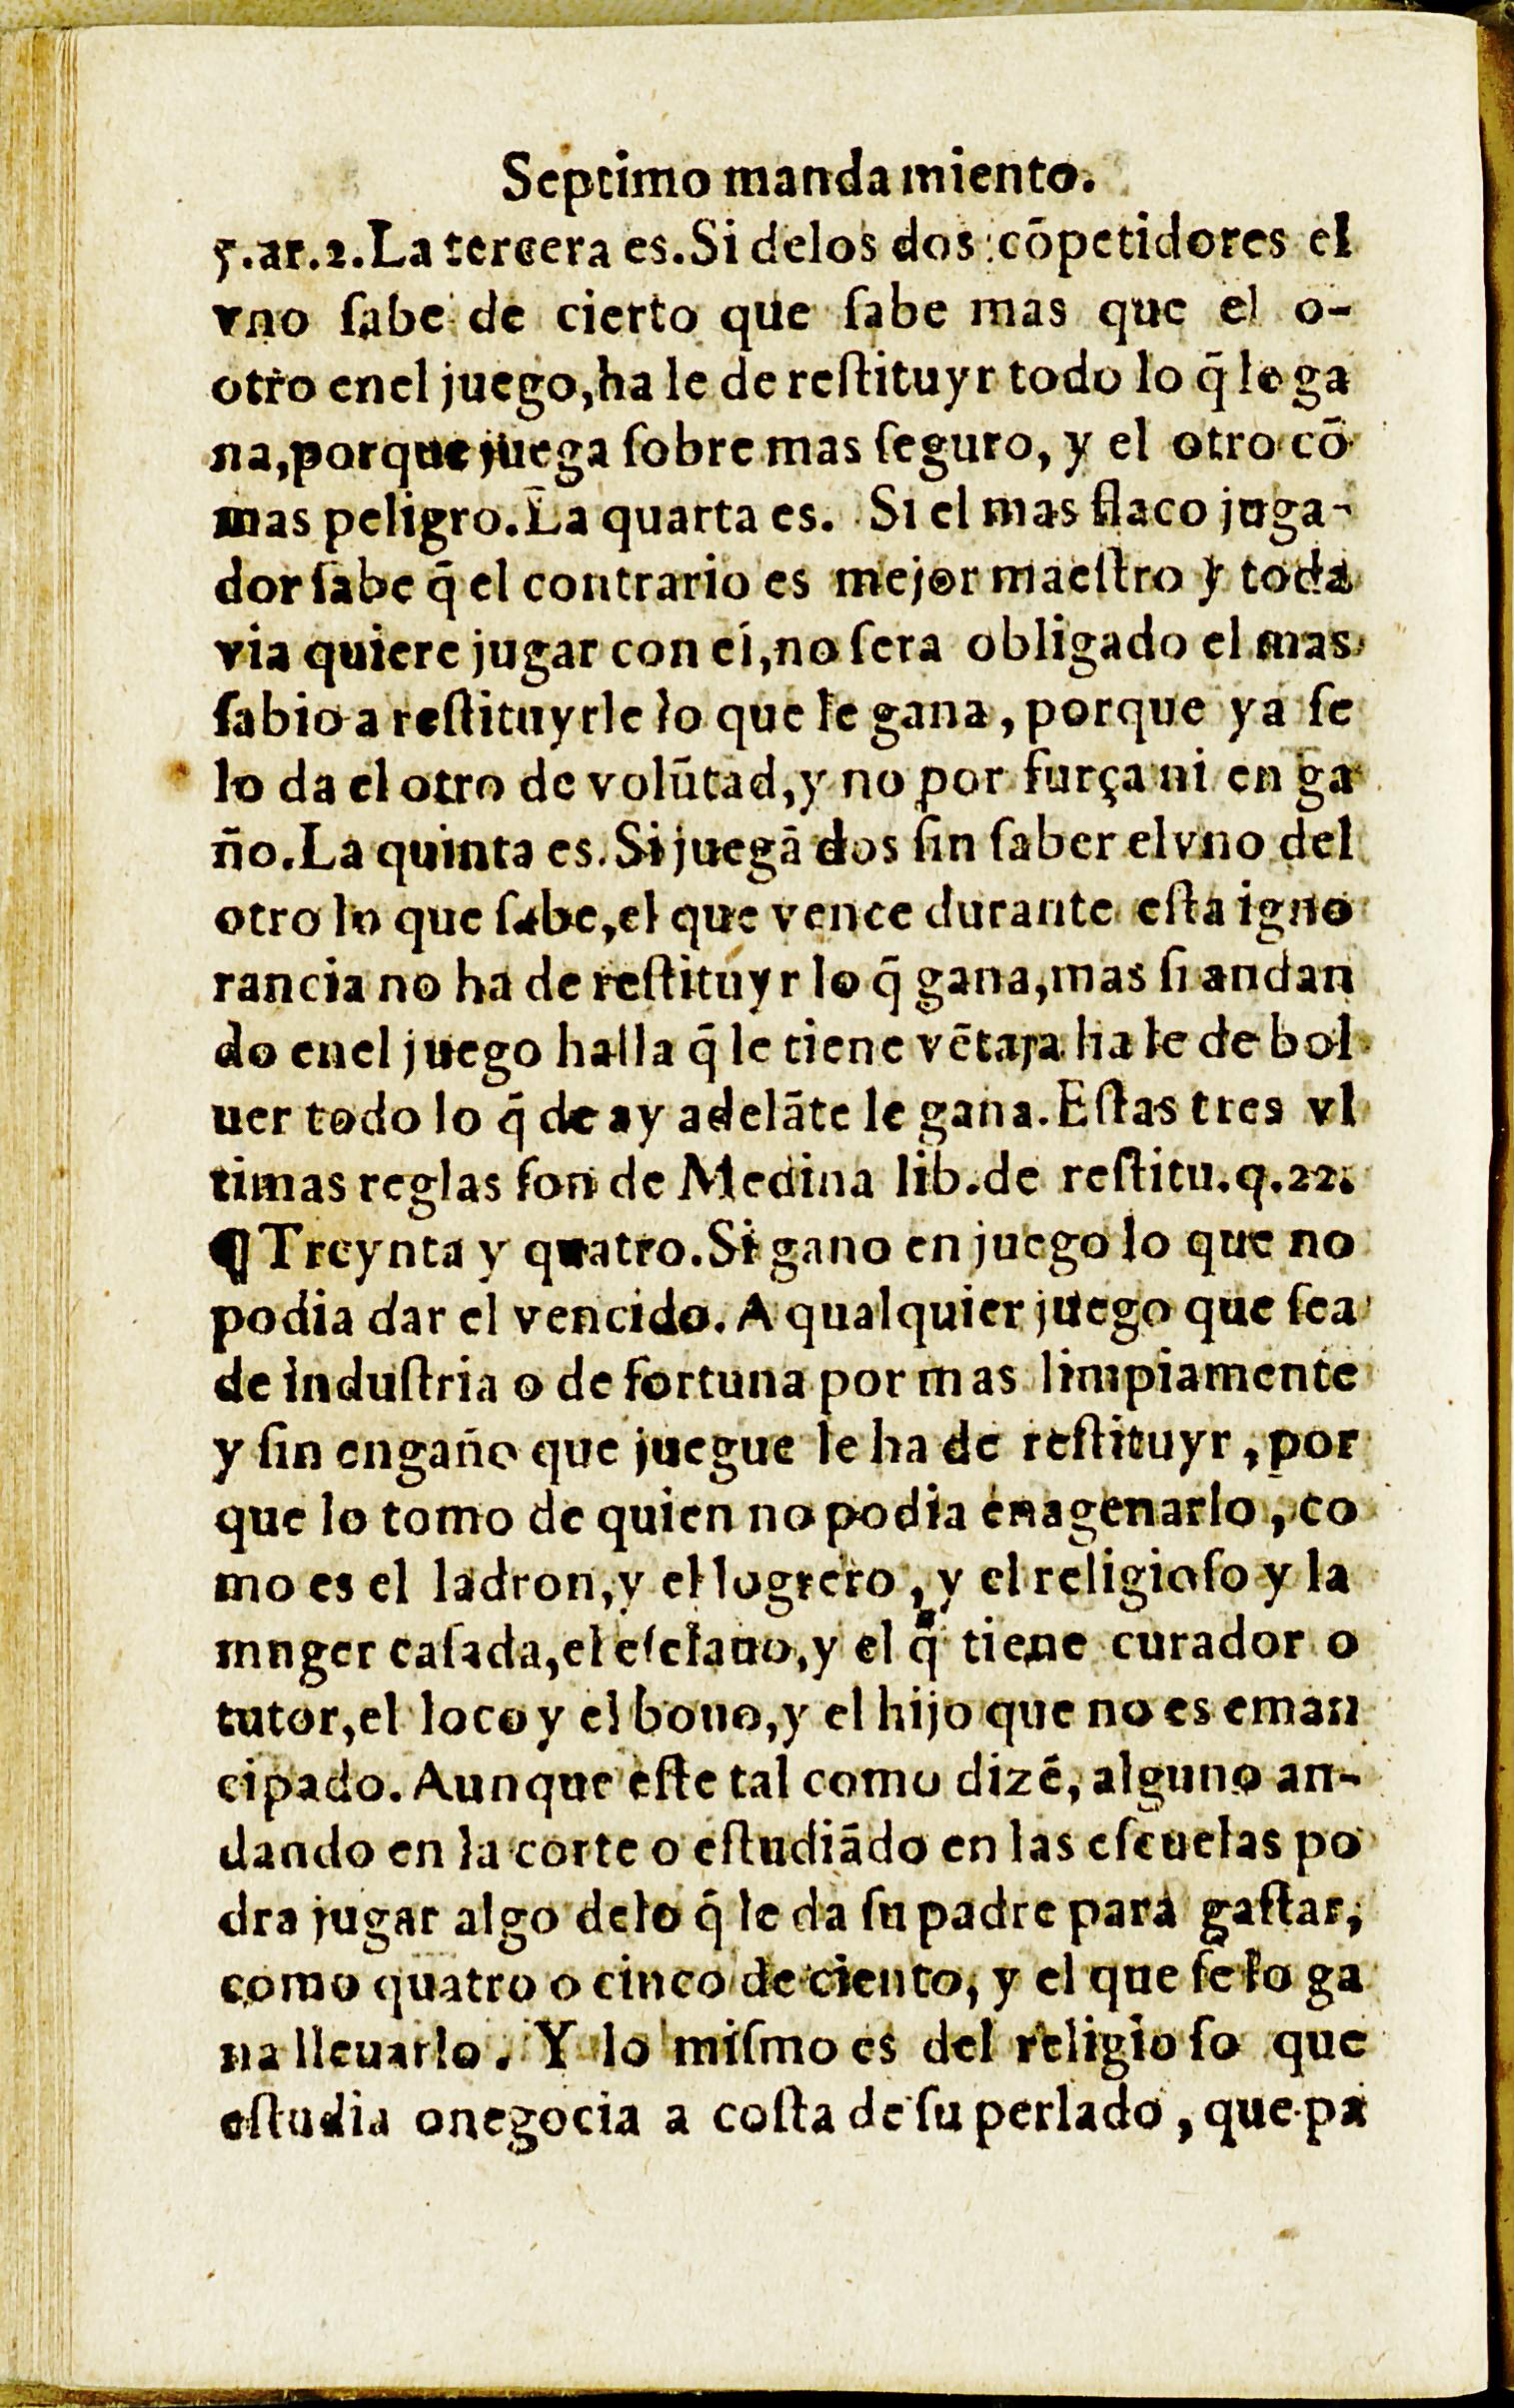 Septimo mandamiento.
5.ar.2.La tercera es.Si delos dos cõpetidores el
vno ſabe de cierto que ſabe mas que el o-
otro enel juego,ha le de reſtituyr todo lo q̃ le ga
na,porque juega ſobre mas ſeguro, y el otro cõ
mas peligro.La quarta es. Si el mas flaco juga-
dor ſabe q̃ el contrario es mejor maeſtro y toda
via quiere jugar con el,no ſera obligado el mas
ſabio a reſtituyrle lo que le gana, porque ya ſe
lo da el otro de volũtad,y no por furça ni en ga
ño.La quinta es.Si juegã dos ſin ſaber elvno del
otro lo que ſabe,el que vence durante eſta igno
rancia no ha de reſtituyr lo q̃ gana,mas ſi andan
do enel juego halla q̃ le tiene vẽtaja ha le de bol
uer todo lo q̃ de ay adelãte le gana.Eſtas tres vl
timas reglas ſon de Medina lib.de reſtitu.q.22.
¶ Treynta y quatro.Si gano en juego lo que no
podia dar el vencido. A qualquier juego que ſea
de induſtria o de fortuna por mas limpiamente
y ſin engaño que juegue le ha de reſtituyr, por
que lo tomo de quien no podia enagenarlo, co
mo es el ladron,y el logrero, y el religioſo y la
mnger caſada,el eſclauo,y el q̃ tiene curador o
tutor,el loco y el bouo,y el hijo que no es eman
cipado. Aunque eſte tal como dizẽ, alguno an-
dando en la corte o eſtudiãdo en las eſcuelas po
dra jugar algo delo q̃ le da ſu padre para gaſtar,
como quatro o cinco de ciento, y el que ſe lo ga
na lleuarlo. Y lo miſmo es del religioſo que
eſtudia onegocia a coſta de ſu perlado, que pa